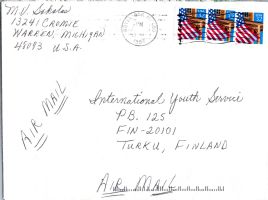 M.V. Sekolas
13241 CROMIE
WARREN, MICHIGAN
48093 U.S.A.
PM
1997
AIR MAIL
International Youth Service
P.B. 125
FIN-20101
TURKU, FINLAND
AIR MAIL